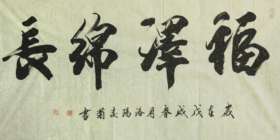 福澤綿長
歲在戊戌春月洛陽
書